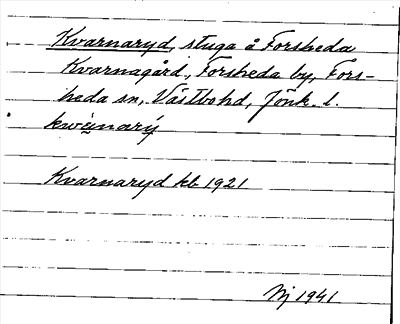 Kvarnaryd, stuga å Forsheda
Kvarnagård, Forsheda by, Fors-
heda sn, Västbo hd, Jönk. l.
Kvarnaryd kb 1921
Nj 1941